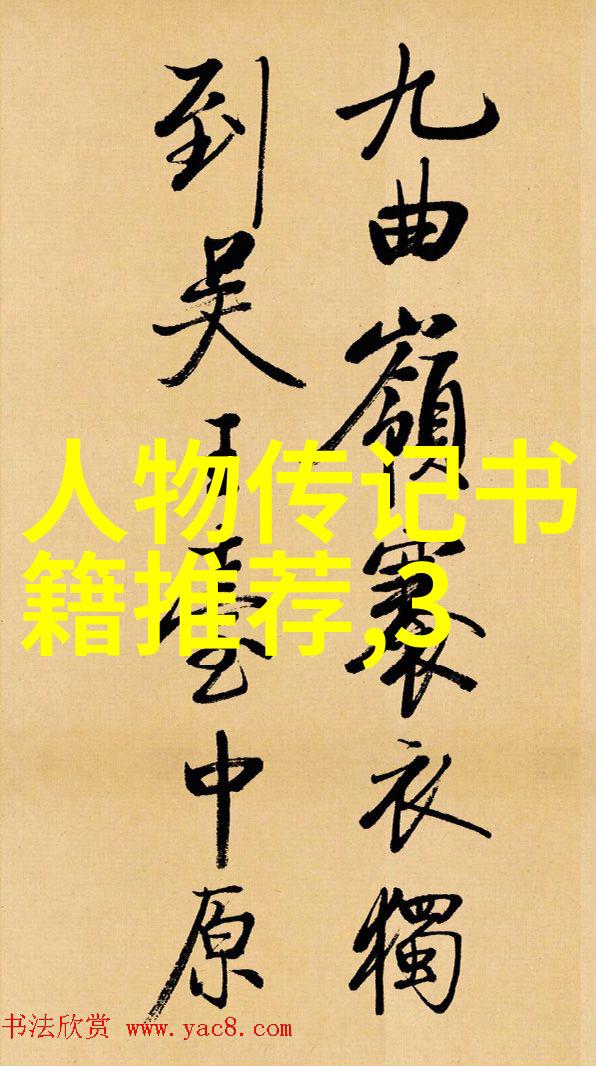 九曲嶺褰衣獨
到吴王臺中原
人物传记书
籍推荐,3
书法欣赏 www.yac8.com